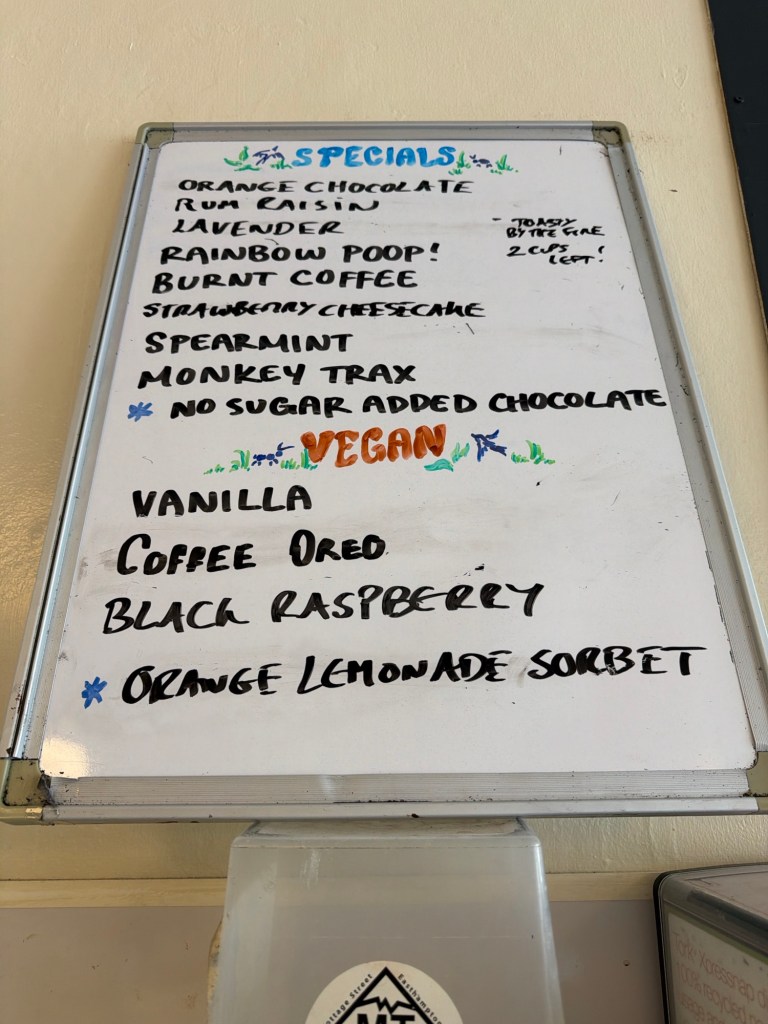 SPECIALS
ORANGE CHOCOLATE
RUM RAISIN
LAVENDER
RAINBOW POOP!
BURNT COFFEE
STRAWBERRY CHEESECAKE
SPEARMINT
MONKEY TRAX
* NO SUGAR ADDED CHOCOLATE
- TOASTY
BY THE FIRE
2 CUPS
LEFT!
VEGAN
VANILLA
COFFEE OREO
BLACK RASPBERRY
* ORANGE LEMONADE SORBET
ottage Street
Easthampton
MT
Xpressnap
100% recycled